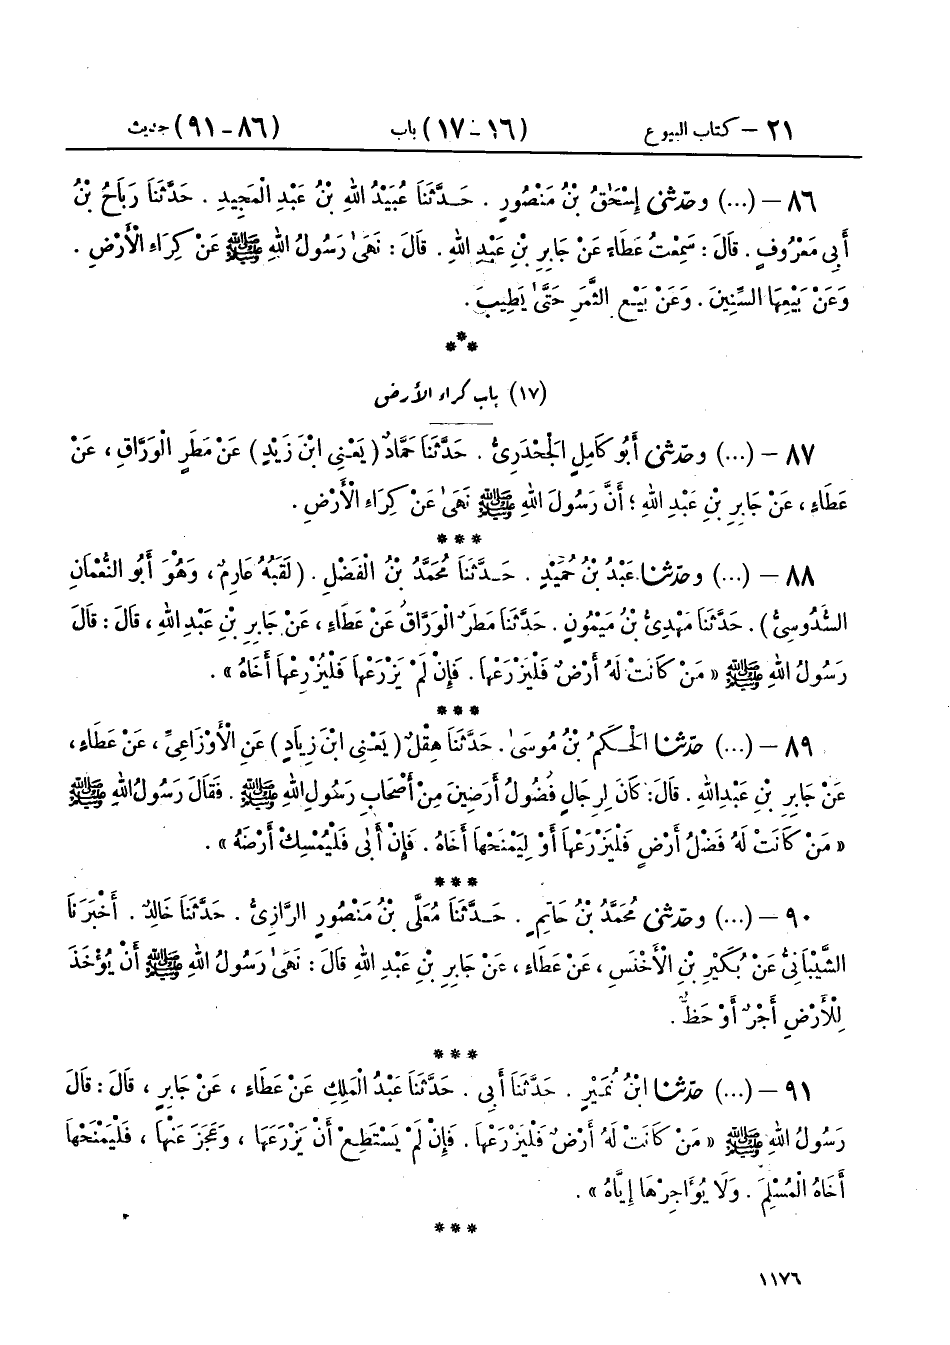 ٢١ – كتاب البيوع (١٦ – ١٧) باب (٨٦ – ٩١) حديث
٨٦ – (...) وحَدَّثَنِي إِسْحَٰقُ بْنُ مَنْصُورٍ . حَدَّثَنَا عُبَيْدُ اللهِ بْنُ عَبْدِ الْمَجِيدِ . حَدَّثَنَا رَبَاحُ بْنُ
أَبِي مَعْرُوفٍ . قَالَ : سَمِعْتُ عَطَاءً عَنْ جَابِرِ بْنِ عَبْدِ اللهِ . قَالَ : نَهَىٰ رَسُولُ اللهِ ﷺ عَنْ كِرَاءِ الْأَرْضِ .
وَعَنْ بَيْعِهَا السِّنِينَ . وَعَنْ بَيْعِ الثَّمَرِ حَتَّىٰ يَطِيبَ .
***
(١٧) باب كراء الأرض
٨٧ – (...) وحَدَّثَنِي أَبُو كَامِلٍ الْجَحْدَرِيُّ . حَدَّثَنَا حَمَّادٌ ( يَعْنِي ابْنَ زَيْدٍ ) عَنْ مَطَرٍ الْوَرَّاقِ ، عَنْ
عَطَاءٍ ، عَنْ جَابِرِ بْنِ عَبْدِ اللهِ ؛ أَنَّ رَسُولَ اللهِ ﷺ نَهَىٰ عَنْ كِرَاءِ الْأَرْضِ .
***
٨٨ – (...) وحَدَّثَنَا عَبْدُ بْنُ حُمَيْدٍ . حَدَّثَنَا مُحَمَّدُ بْنُ الْفَضْلِ . ( لَقَبُهُ عَارِمٌ ، وَهُوَ أَبُو النُّعْمَانِ
السَّدُوسِيُّ ) . حَدَّثَنَا مَهْدِيُّ بْنُ مَيْمُونٍ . حَدَّثَنَا مَطَرٌ الْوَرَّاقُ عَنْ عَطَاءٍ ، عَنْ جَابِرِ بْنِ عَبْدِ اللهِ ، قَالَ : قَالَ
رَسُولُ اللهِ ﷺ « مَنْ كَانَتْ لَهُ أَرْضٌ فَلْيَزْرَعْهَا . فَإِنْ لَمْ يَزْرَعْهَا فَلْيُزْرِعْهَا أَخَاهُ » .
***
٨٩ – (...) حَدَّثَنَا الْحَكَمُ بْنُ مُوسَىٰ . حَدَّثَنَا هِقْلٌ ( يَعْنِي ابْنَ زِيَادٍ ) عَنِ الْأَوْزَاعِيِّ ، عَنْ عَطَاءٍ ،
عَنْ جَابِرِ بْنِ عَبْدِ اللهِ . قَالَ : كَانَ لِرِجَالٍ فُضُولُ أَرَضِينَ مِنْ أَصْحَابِ رَسُولِ اللهِ ﷺ . فَقَالَ رَسُولُ اللهِ ﷺ
« مَنْ كَانَتْ لَهُ فَضْلُ أَرْضٍ فَلْيَزْرَعْهَا أَوْ لِيَمْنَحْهَا أَخَاهُ . فَإِنْ أَبَىٰ فَلْيُمْسِكْ أَرْضَهُ » .
***
٩٠ – (...) وحَدَّثَنِي مُحَمَّدُ بْنُ حَاتِمٍ . حَدَّثَنَا مُعَلَّى بْنُ مَنْصُورٍ الرَّازِيُّ . حَدَّثَنَا خَالِدٌ . أَخْبَرَنَا
الشَّيْبَانِيُّ عَنْ بُكَيْرِ بْنِ الْأَخْنَسِ ، عَنْ عَطَاءٍ ، عَنْ جَابِرِ بْنِ عَبْدِ اللهِ قَالَ : نَهَىٰ رَسُولُ اللهِ ﷺ أَنْ يُؤْخَذَ
لِلْأَرْضِ أَجْرٌ أَوْ حَظٌّ .
***
٩١ – (...) حَدَّثَنَا ابْنُ نُمَيْرٍ . حَدَّثَنَا أَبِي . حَدَّثَنَا عَبْدُ الْمَلِكِ عَنْ عَطَاءٍ ، عَنْ جَابِرٍ ، قَالَ : قَالَ
رَسُولُ اللهِ ﷺ « مَنْ كَانَتْ لَهُ أَرْضٌ فَلْيَزْرَعْهَا . فَإِنْ لَمْ يَسْتَطِعْ أَنْ يَزْرَعَهَا ، وَعَجَزَ عَنْهَا ، فَلْيَمْنَحْهَا
أَخَاهُ الْمُسْلِمَ . وَلَا يُؤَاجِرْهَا إِيَّاهُ » .
***
١١٧٦